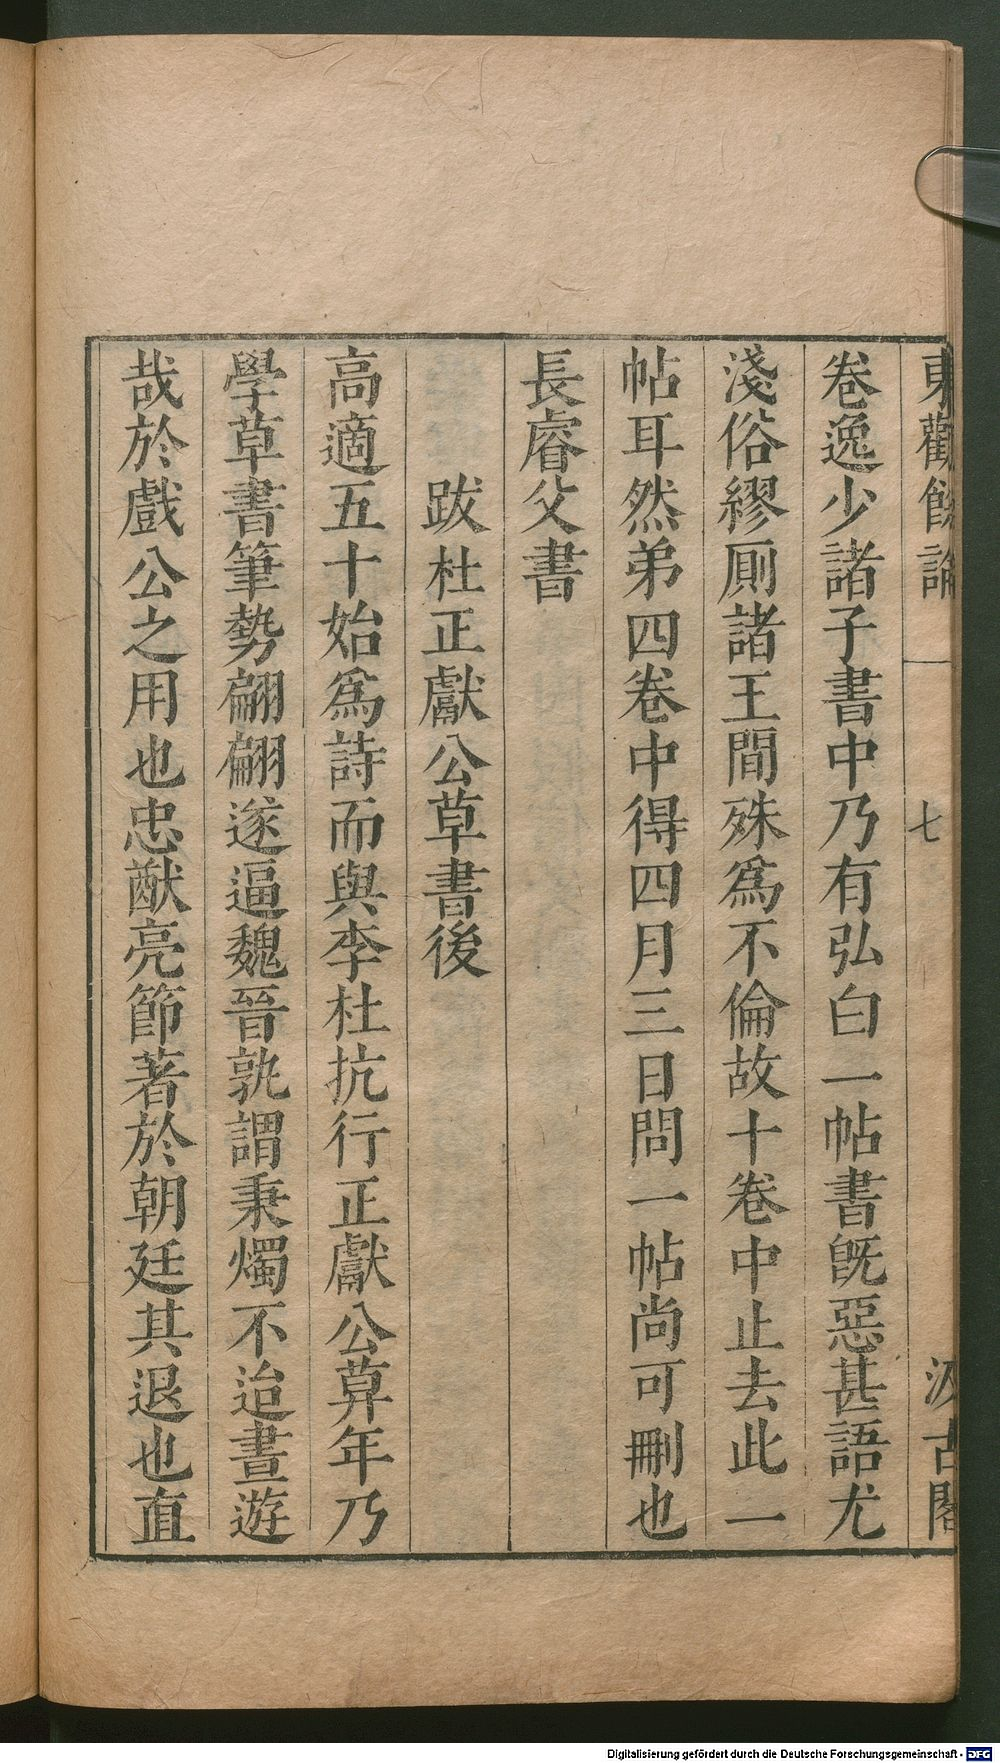 東觀餘論 七 汲古閣
卷逸少諸子書中乃有弘白一帖書旣惡甚語尤
淺俗繆厠諸王間殊爲不倫故十卷中止去此一
帖耳然弟四卷中得四月三日問一帖尚可刪也
長睿父書
跋杜正獻公草書後
高適五十始爲詩而與李杜抗行正獻公莫年乃
學草書筆勢翩翩遂逼魏晉孰謂秉燭不迨晝遊
哉於戲公之用也忠猷亮節著於朝廷其退也直
Digitalisierung gefördert durch die Deutsche Forschungsgemeinschaft - DFG